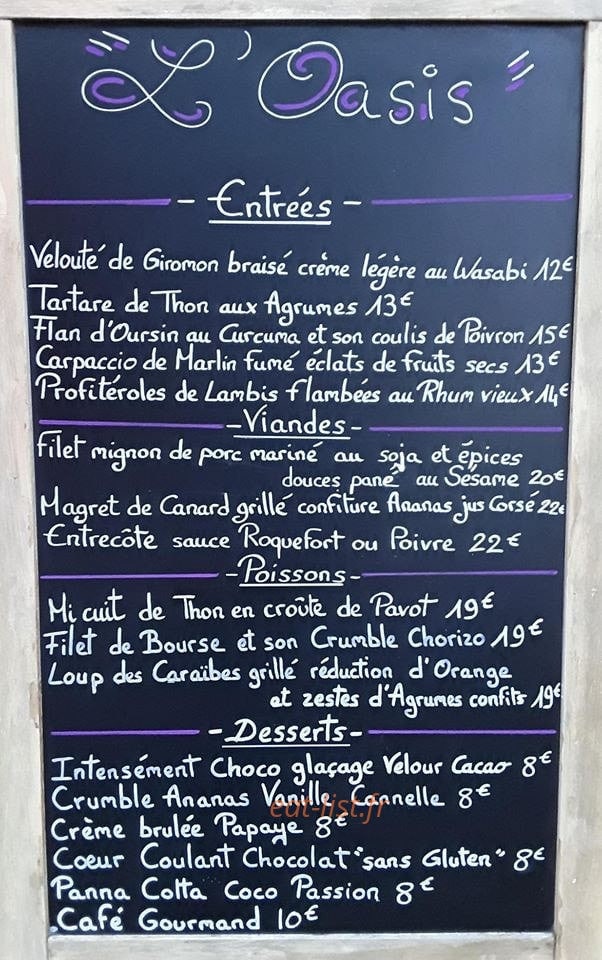 L'Oasis
- Entrées -
Velouté de Giromon braisé crème légère au Wasabi 12€
Tartare de Thon aux Agrumes 13€
Flan d'Oursin au Curcuma et son coulis de Poivron 15€
Carpaccio de Marlin fumé éclats de fruits secs 13€
Profitéroles de Lambis flambées au Rhum vieux 14€
- Viandes -
Filet mignon de porc mariné au soja et épices
douces pané au Sésame 20€
Magret de Canard grillé confiture Ananas jus Corsé 22€
Entrecôte sauce Roquefort ou Poivre 22€
- Poissons -
Mi cuit de Thon en croûte de Pavot 19€
Filet de Bourse et son Crumble Chorizo 19€
Loup des Caraïbes grillé réduction d'Orange
et zestes d'Agrumes confits 19€
- Desserts -
Intensément Choco glaçage Velour Cacao 8€
Crumble Ananas Vanille Cannelle 8€
eat-list.fr
Crème brulée Papaye 8€
Coeur Coulant Chocolat "sans Gluten" 8€
Panna Cotta Coco Passion 8€
Café Gourmand 10€